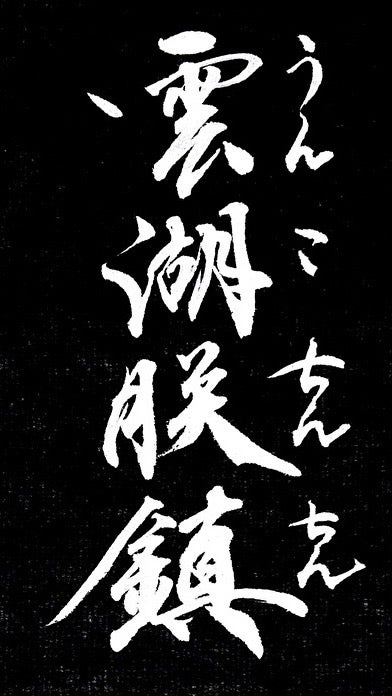 雲湖朕鎮
うんこちんちん